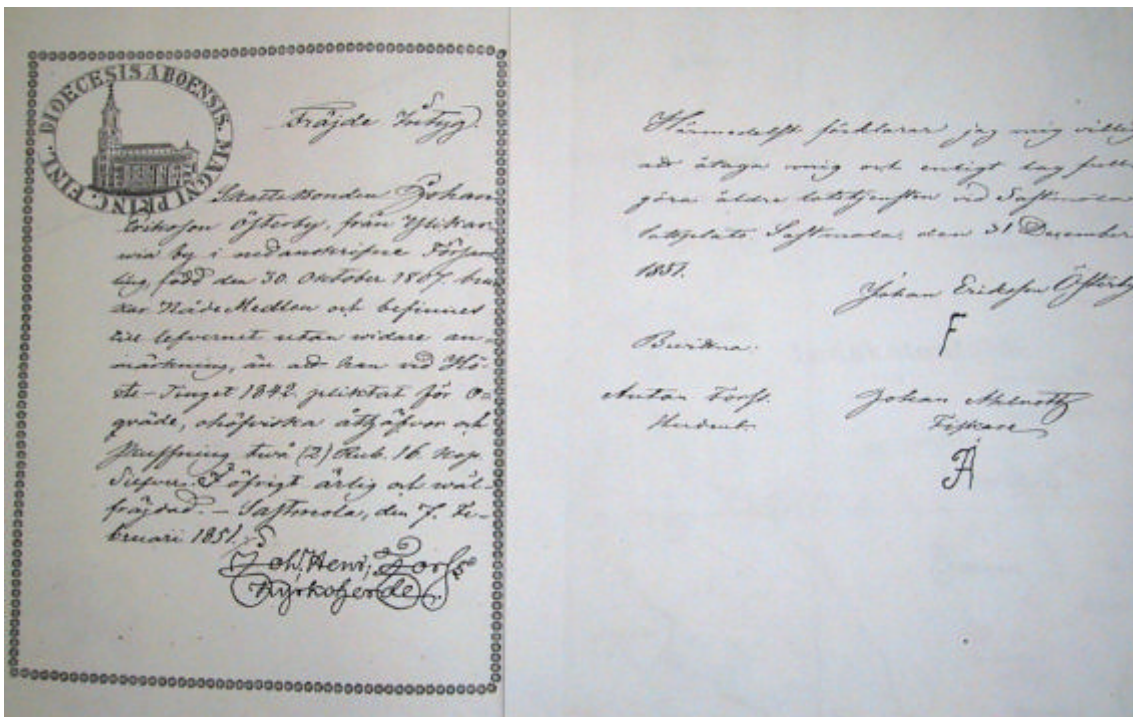 DIOECESIS ABOENSIS. MAGNI PRINC. FINL.
Fräjde Betyg.
Skattebonden Johan
Eriksson Österby, från
by i nedanskrifne Försam-
ling, född den 30. Oktober 1807. bru-
kar NådeMedlen och befinnes
till lefvernet utan widare an-
märkning, än att han vid Hö-
ste-Tinget 1842 pliktat för o-
qväde, ohöfviska åthäfvor och
Skuffning två (2) Rub. 16 Kop.
Silfver. I öfrigt ärlig och wäl-
fräjdad. – Sastmola, den 7. Fe-
bruari 1851.
Joh. Henr. Forss
Kyrkoherde.
Härmedelst förklarar jag mig villig
att åtaga mig och enligt lag full-
göra äldre lotstjensten vid Sastmola
lotsplats. Sastmola, den 31 December
1851.
Johan Eriksson Österby
F
Bevittna:
Anton Forss. Johan
Student. Fiskare